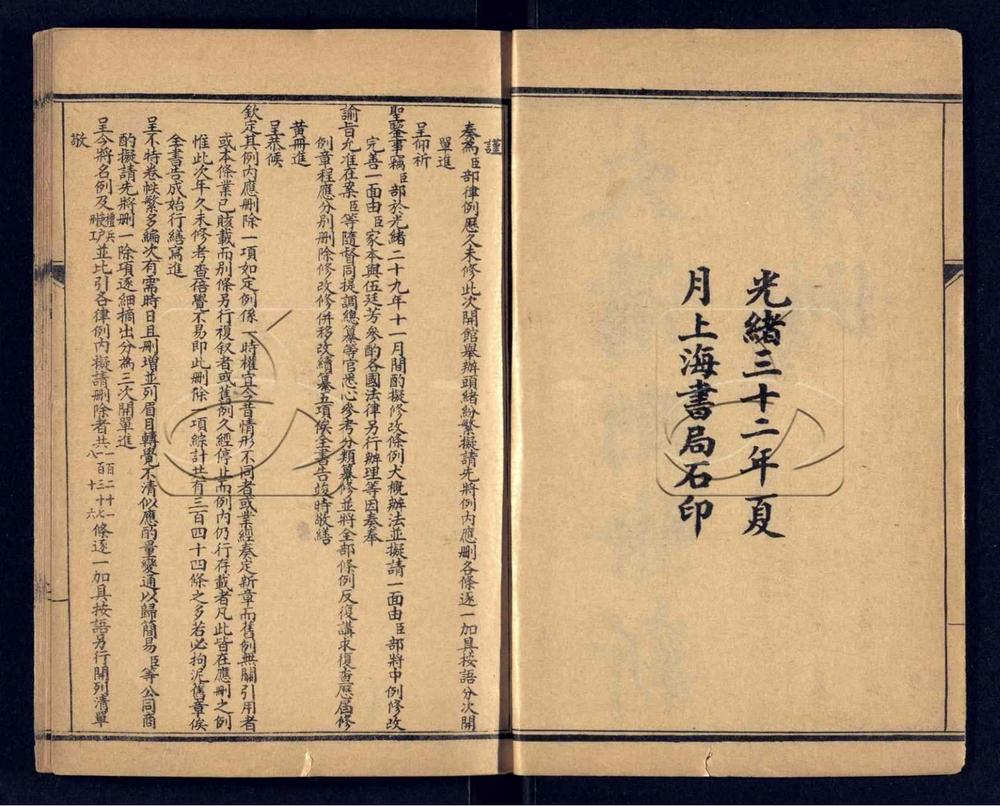 光緒三十二年夏
月上海書局石印
謹
奏為臣部律例歷久未修此次開館舉辦頭緒紛繁擬請先將例內應刪各條逐一加具按語分次開
單進
呈仰祈
聖鑒事竊臣部於光緒二十九年十一月間酌擬修改條例大概辦法並擬請一面由臣部將中例修改
完善一面由臣家本與伍廷芳參酌各國法律另行辦理等因奏奉
諭旨允准在案臣等隨督同提調總纂等官悉心參考分類纂修並將全部條例反復講求復查歷屆修
例章程應分別刪除修改修併移改續纂五項俟全書告竣時敬繕
黃冊進
呈恭候
欽定其例內應刪除一項如定例係一時權宜今昔情形不同者或業經奏定新章而舊例無關引用者
或本條業已賅載而別條另行複叙者或舊例久經停止而例內仍行存載者凡此皆在應刪之例
惟此次年久未修考查蓓覺不易即此刪除一項綜計共有三百四十四條之多若必拘泥舊章俟
全書告成始行繕寫進
呈不特卷帙繁多編次有需時日且刪增並列眉目轉覺不清似應酌量變通以歸簡易臣等公同商
酌擬請先將刪一除項逐細摘出分為三次開單進
呈今將名例及吏戶禮兵刑工並比引各律例內擬請刪除者共一百二十一八百三十七十六條逐一加具按語另行開列清單
敬